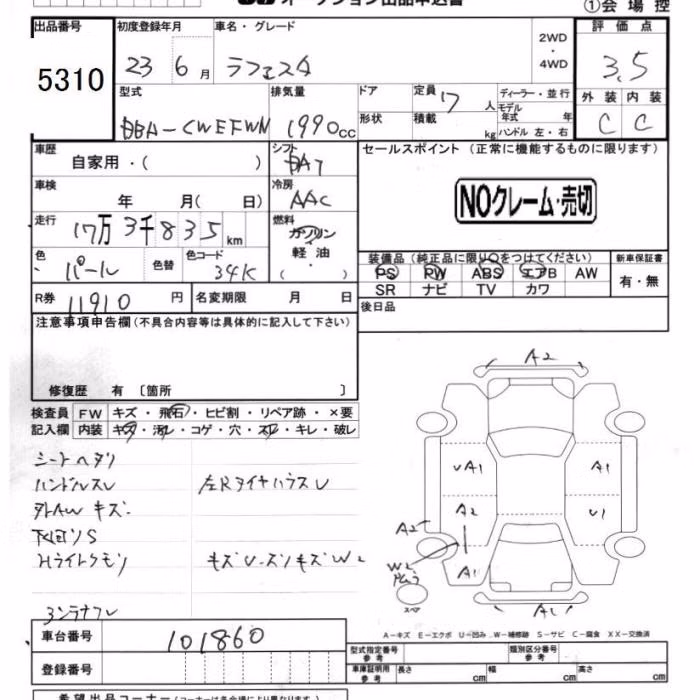 オークション出品申込書
①会場控
出品番号
5310
初度登録年月
23 6月
車名・グレード
ラフェスタ
2WD
・
4WD
評価点
3.5
外装 内装
C C
型式
DBA-CWEFWN
排気量
1990cc
ドア
形状
定員 7人
積載 kg
ディーラー・並行
モデル年式 年
ハンドル 左・右
車歴
自家用・( )
シフト
DAT
車検
年 月( 日)
冷房
AAC
走行
17万3千835km
燃料
ガソリン
軽油
・
( )
色
パール
色替
色コード
34K
R券 11910円
名変期限 月 日
セールスポイント (正常に機能するものに限ります)
NOクレーム・売切
装備品 (純正品に限り○をつけてください)
PS PW ABS エアB AW
SR ナビ TV カワ
新車保証書
有・無
後日品
注意事項申告欄(不具合内容等は具体的に記入して下さい)
修復歴 有 〔箇所 〕
検査員 FW キズ・飛石・ヒビ割・リペア跡・×要
記入欄 内装 キズ・汚れ・コゲ・穴・スレ・キレ・破レ
シートヘタリ
ハンドルスレ
左Rタイヤハウスレ
外AWキズ
下回りS
Hライトクモリ
A2
UA1
A1
A2
U1
A2
W2
A1
スペア
A1
A-キズ E-エクボ U-凹み W-補修跡 S-サビ C-腐食 XX-交換済
車台番号 101860
登録番号
型式指定番号
参考
類別区分番号
参考
車庫証明用
参考
長さ cm
幅 cm
高さ cm
希望出品コーナー